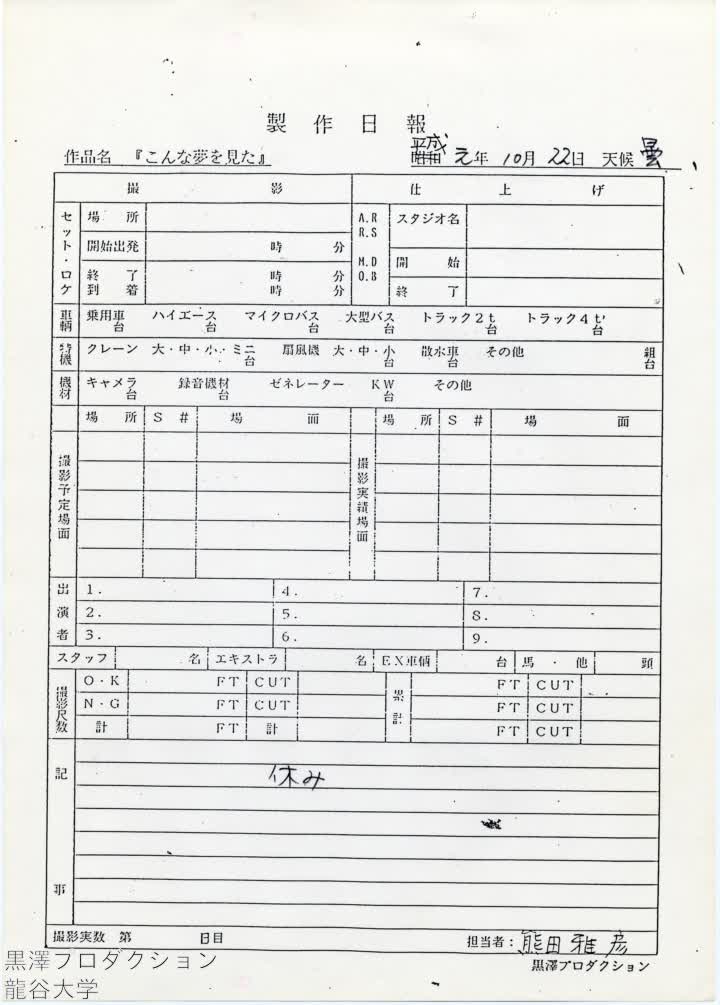 製作日報
作品名 『こんな夢を見た』 平成 昭和 元年 10月 22日 天候 曇
撮影 仕上げ
セット・ロケ 場所 A.R R.S M.D O.B スタジオ名
開始出発 時 分 開始
終了到着 時 分 時 分 終了
車輌 乗用車 台 ハイエース 台 マイクロバス 台 大型バス 台 トラック2t 台 トラック4t 台
特機 クレーン 大・中・小・ミニ 台 扇風機 大・中・小 台 散水車 台 その他 組 台
機材 キャメラ 台 録音機材 台 ゼネレーター KW 台 その他
場所 S # 場面 場所 S # 場面
撮影予定場面 撮影実績場面
出演者 1. 4. 7.
2. 5. 8.
3. 6. 9.
スタッフ 名 エキストラ 名 EX車輌 台 馬・他 頭
撮影尺数 O・K FT CUT 累計 FT CUT
N・G FT CUT FT CUT
計 FT 計 FT CUT
記事
休み
撮影実数 第 日目 担当者: 熊田雅彦
黒澤プロダクション
黒澤プロダクション
龍谷大学